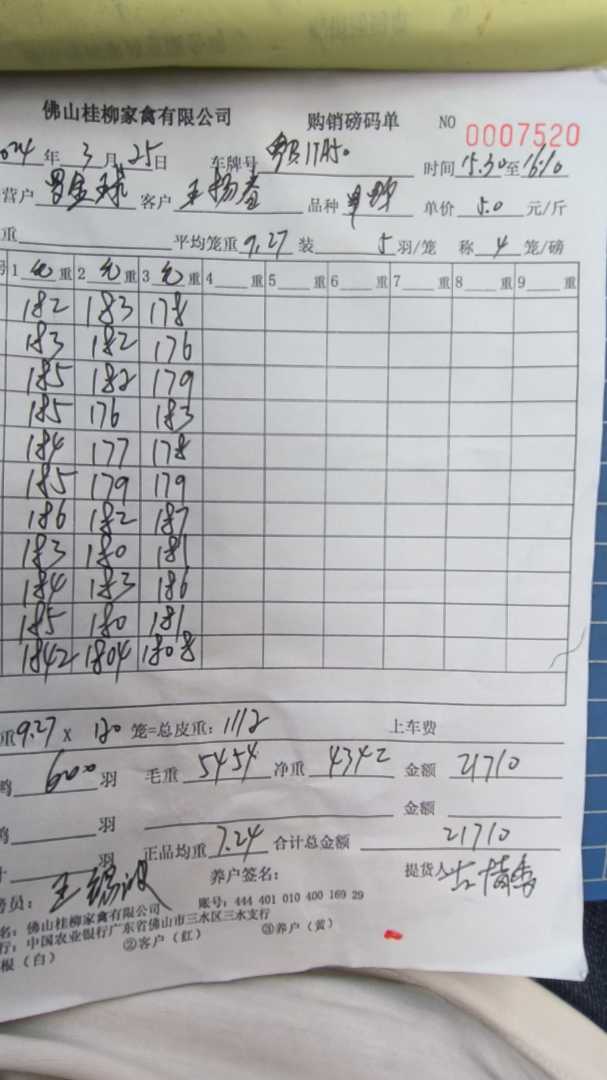 佛山桂柳家禽有限公司 购销磅码单 NO 0007520
年 3 月 25 日 车牌号 时间 15.30 至 16:10
营户 客户 品种 单价 5.0 元/斤
重 平均笼重 9.27 装 5 羽/笼 称 4 笼/磅
号 1 毛 重 2 毛 重 3 毛 重 4 重 5 重 6 重 7 重 8 重 9 重
182 183 178
183 182 176
185 182 179
185 176 183
184 177 178
185 179 179
186 182 187
183 180 181
184 183 186
185 180 181
1842 1804 1808
重 9.27 X 120 笼=总皮重: 1112 上车费
鸭 600 羽 毛重 5454 净重 4342 金额 21710
鸭 羽 金额
计 羽 正品均重 7.24 合计总金额 21710
员: 养户签名: 提货人
名: 佛山桂柳家禽有限公司 账号: 444 401 010 400 169 29
行: 中国农业银行广东省佛山市三水区三水支行
根(白) ②客户(红) ③养户(黄)